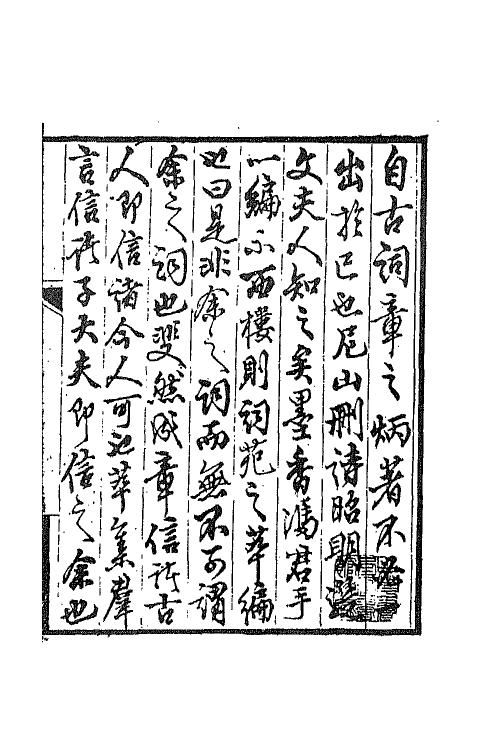 自古詞章之炳著不必
出於己也尼山刪詩昭明選
文夫人知之矣墨香馮君手
一編示西樓則詞苑之萃編
也曰是非余之詞而無不可謂
余之詞也斐然成章信諸古
人即信諸今人可也萃集羣
言信諸子大夫即信之余也